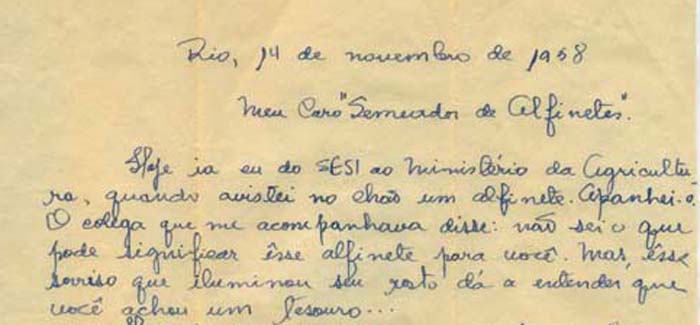 Rio, 14 de novembro de 1958
Meu Caro "Semeador de Alfinetes".
Hoje ia eu do SESI ao Ministério da Agricultu-
ra, quando avistei no chão um alfinete. Apanhei-o.
O colega que me acompanhava disse: não sei o que
pode significar êsse alfinete para você. Mas, êsse
sorriso que iluminou seu rosto dá a entender que
você achou um tesouro...